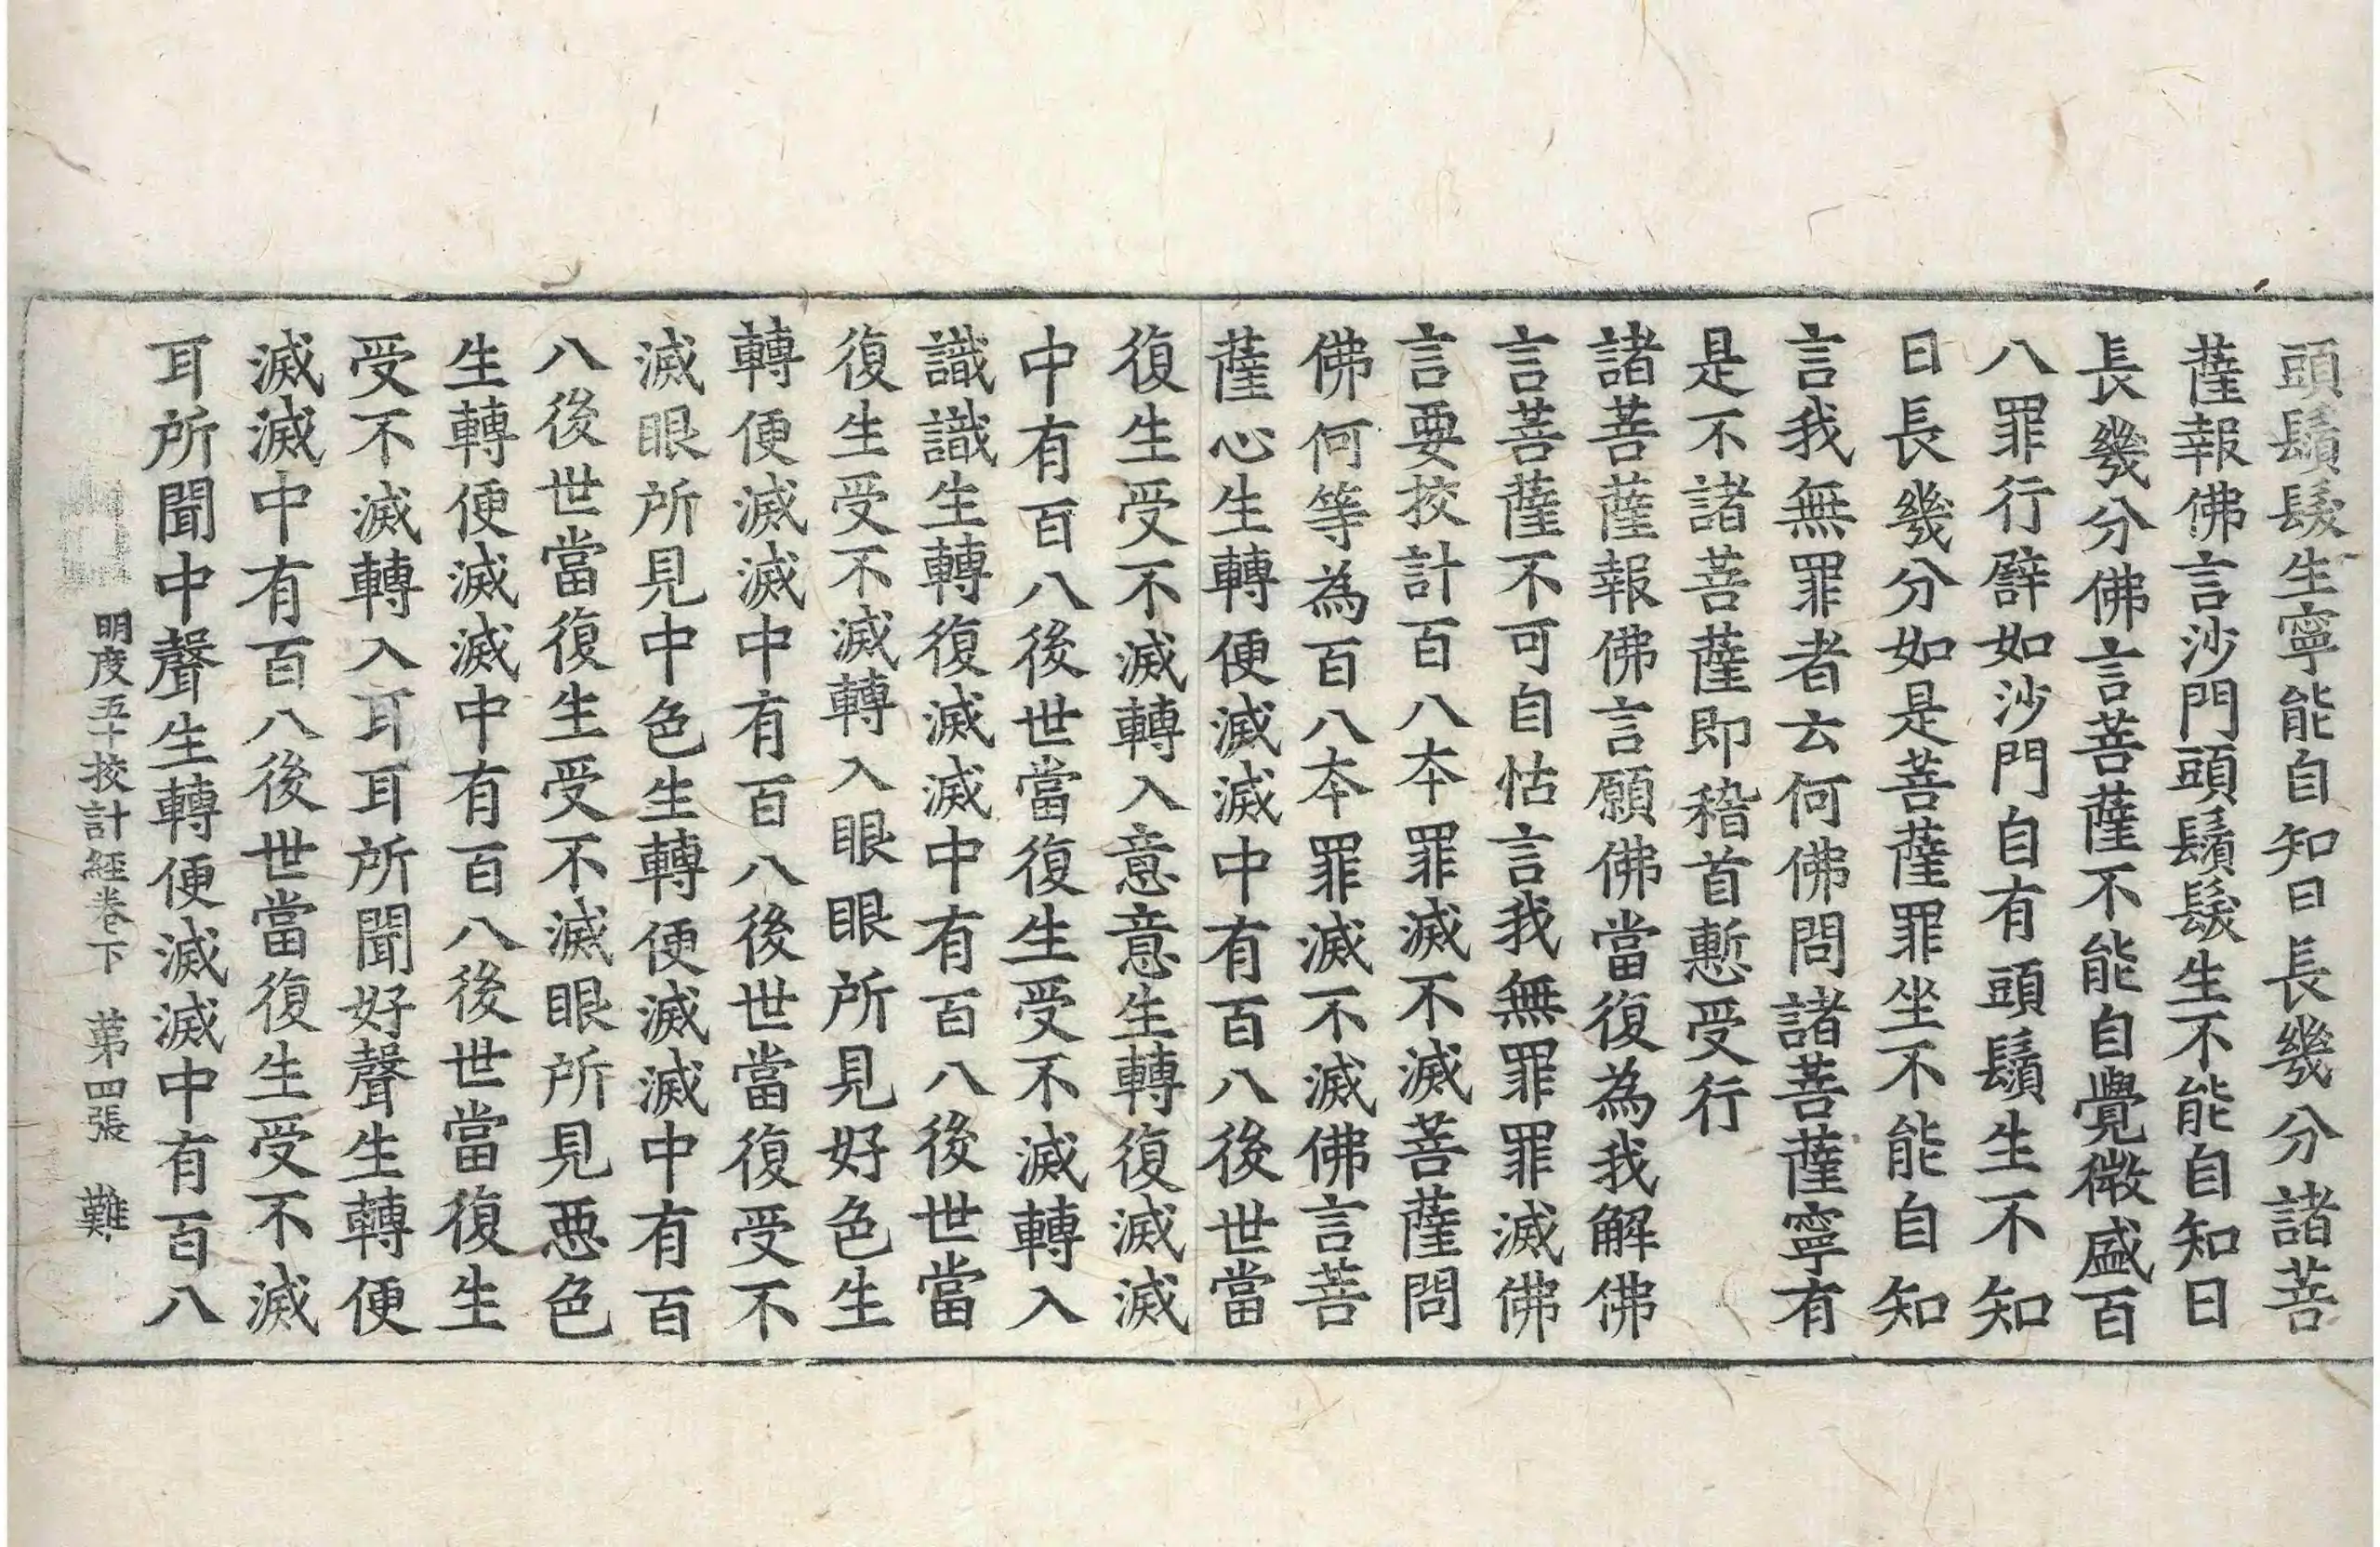 頭鬚髮生寧能自知日長幾分諸菩
薩報佛言沙門頭鬚髮生不能自知日
長幾分佛言菩薩不能自覺微盛百
八罪行譬如沙門自有頭鬚生不知
日長幾分如是菩薩罪坐不能自知
言我無罪者云何佛問諸菩薩寧有
是不諸菩薩即稽首慙受行
諸菩薩報佛言願佛當復為我解佛
言菩薩不可自怙言我無罪罪滅佛
言要挍計百八本罪滅不滅菩薩問
佛何等為百八本罪滅不滅佛言菩
薩心生轉便滅滅中有百八後世當
復生受不滅轉入意意生轉復滅滅
中有百八後世當復生受不滅轉入
識識生轉復滅滅中有百八後世當
復生受不滅轉入眼眼所見好色生
轉便滅滅中有百八後世當復受不
滅眼所見中色生轉便滅滅中有百
八後世當復生受不滅眼所見惡色
生轉便滅滅中有百八後世當復生
受不滅轉入耳耳所聞好聲生轉便
滅滅中有百八後世當復生受不滅
耳所聞中聲生轉便滅滅中有百八
明度五十挍計經卷下 苐四張 難